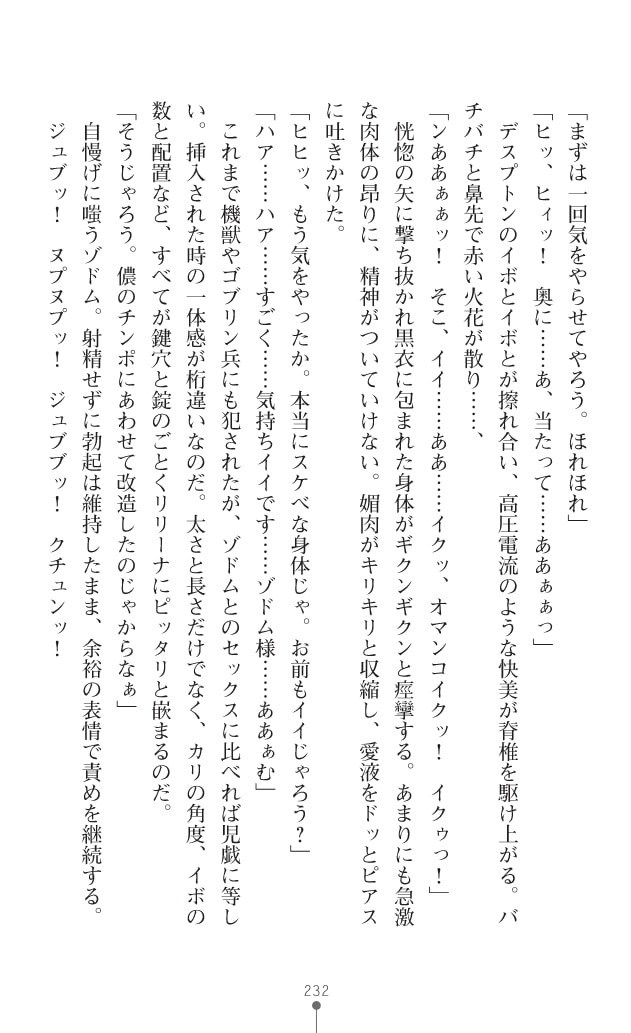 「まずは一回気をやらせてやろう。ほれほれ」
「ヒッ、ヒィッ！　奥に……あ、当たって……ああぁぁっ」
　デスプトンのイボとイボとが擦れ合い、高圧電流のような快美が脊椎を駆け上がる。バ
チバチと鼻先で赤い火花が散り……、
「ンああぁぁッ！　そこ、イイ……ああ……イクッ、オマンコイクッ！　イクゥっ！」
　恍惚の矢に撃ち抜かれ黒衣に包まれた身体がギクンギクンと痙攣する。あまりにも急激
な肉体の昂りに、精神がついていけない。媚肉がキリキリと収縮し、愛液をドッとピアス
に吐きかけた。
「ヒヒッ、もう気をやったか。本当にスケベな身体じゃ。お前もイイじゃろう？」
「ハア……ハア……すごく……気持ちイイです……ゾドム様……ああぁむ」
　これまで機獣やゴブリン兵にも犯されたが、ゾドムとのセックスに比べれば児戯に等し
い。挿入された時の一体感が桁違いなのだ。太さと長さだけでなく、カリの角度、イボの
数と配置など、すべてが鍵穴と錠のごとくリリーナにピッタリと嵌まるのだ。
「そうじゃろう。儂のチンポにあわせて改造したのじゃからなぁ」
　自慢げに嗤うゾドム。射精せずに勃起は維持したまま、余裕の表情で責めを継続する。
　ジュブッ！　ヌプヌプッ！　ジュブブッ！　クチュンッ！
232